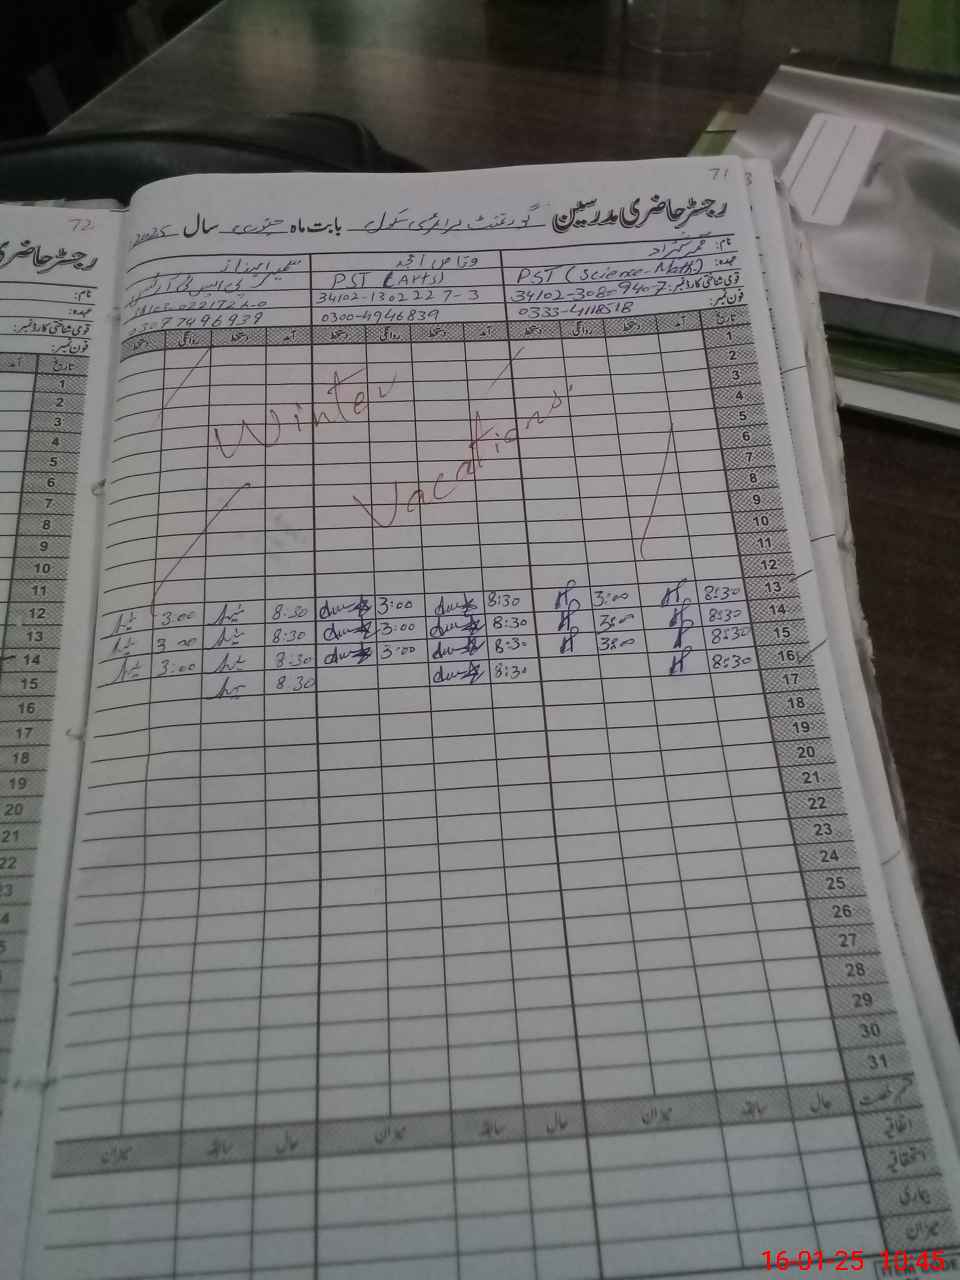 71
رجسٹر حاضری مدرسین گورنمنٹ پرائمری سکول بابت ماہ جنوری سال 2025
نام:
عہدہ: PST (Science-Math) PST (Arts)
قومی شناختی کارڈ نمبر: 34102-3080940-7 34102-1302227-3
فون نمبر: 0333-4118518 0300-4946839 03077496939
تاریخ آمد دستخط روانگی دستخط آمد دستخط روانگی دستخط آمد دستخط روانگی دستخط
1
2
3
4
5
6
7
8
9
10
11
12
Winter
Vacations
13 8:30 3:00 8:30 3:00 8:30 3:00
14 8:30 3:00 8:30 3:00 8:30 3:00
15 8:30 3:00 8:30 3:00 8:30 3:00
16 8:30 8:30 8:30
17
18
19
20
21
22
23
24
25
26
27
28
29
30
31
قسم رخصت حال سابقہ میزان حال سابقہ میزان حال سابقہ میزان
اتفاقیہ
استحقاقیہ
بیماری
میزان
72
رجسٹر حاضری
نام:
عہدہ:
قومی شناختی کارڈ نمبر:
فون نمبر:
تاریخ آمد
1
2
3
4
5
6
7
8
9
10
11
12
13
14
15
16
17
18
19
20
21
22
23
16-01-25 10:45